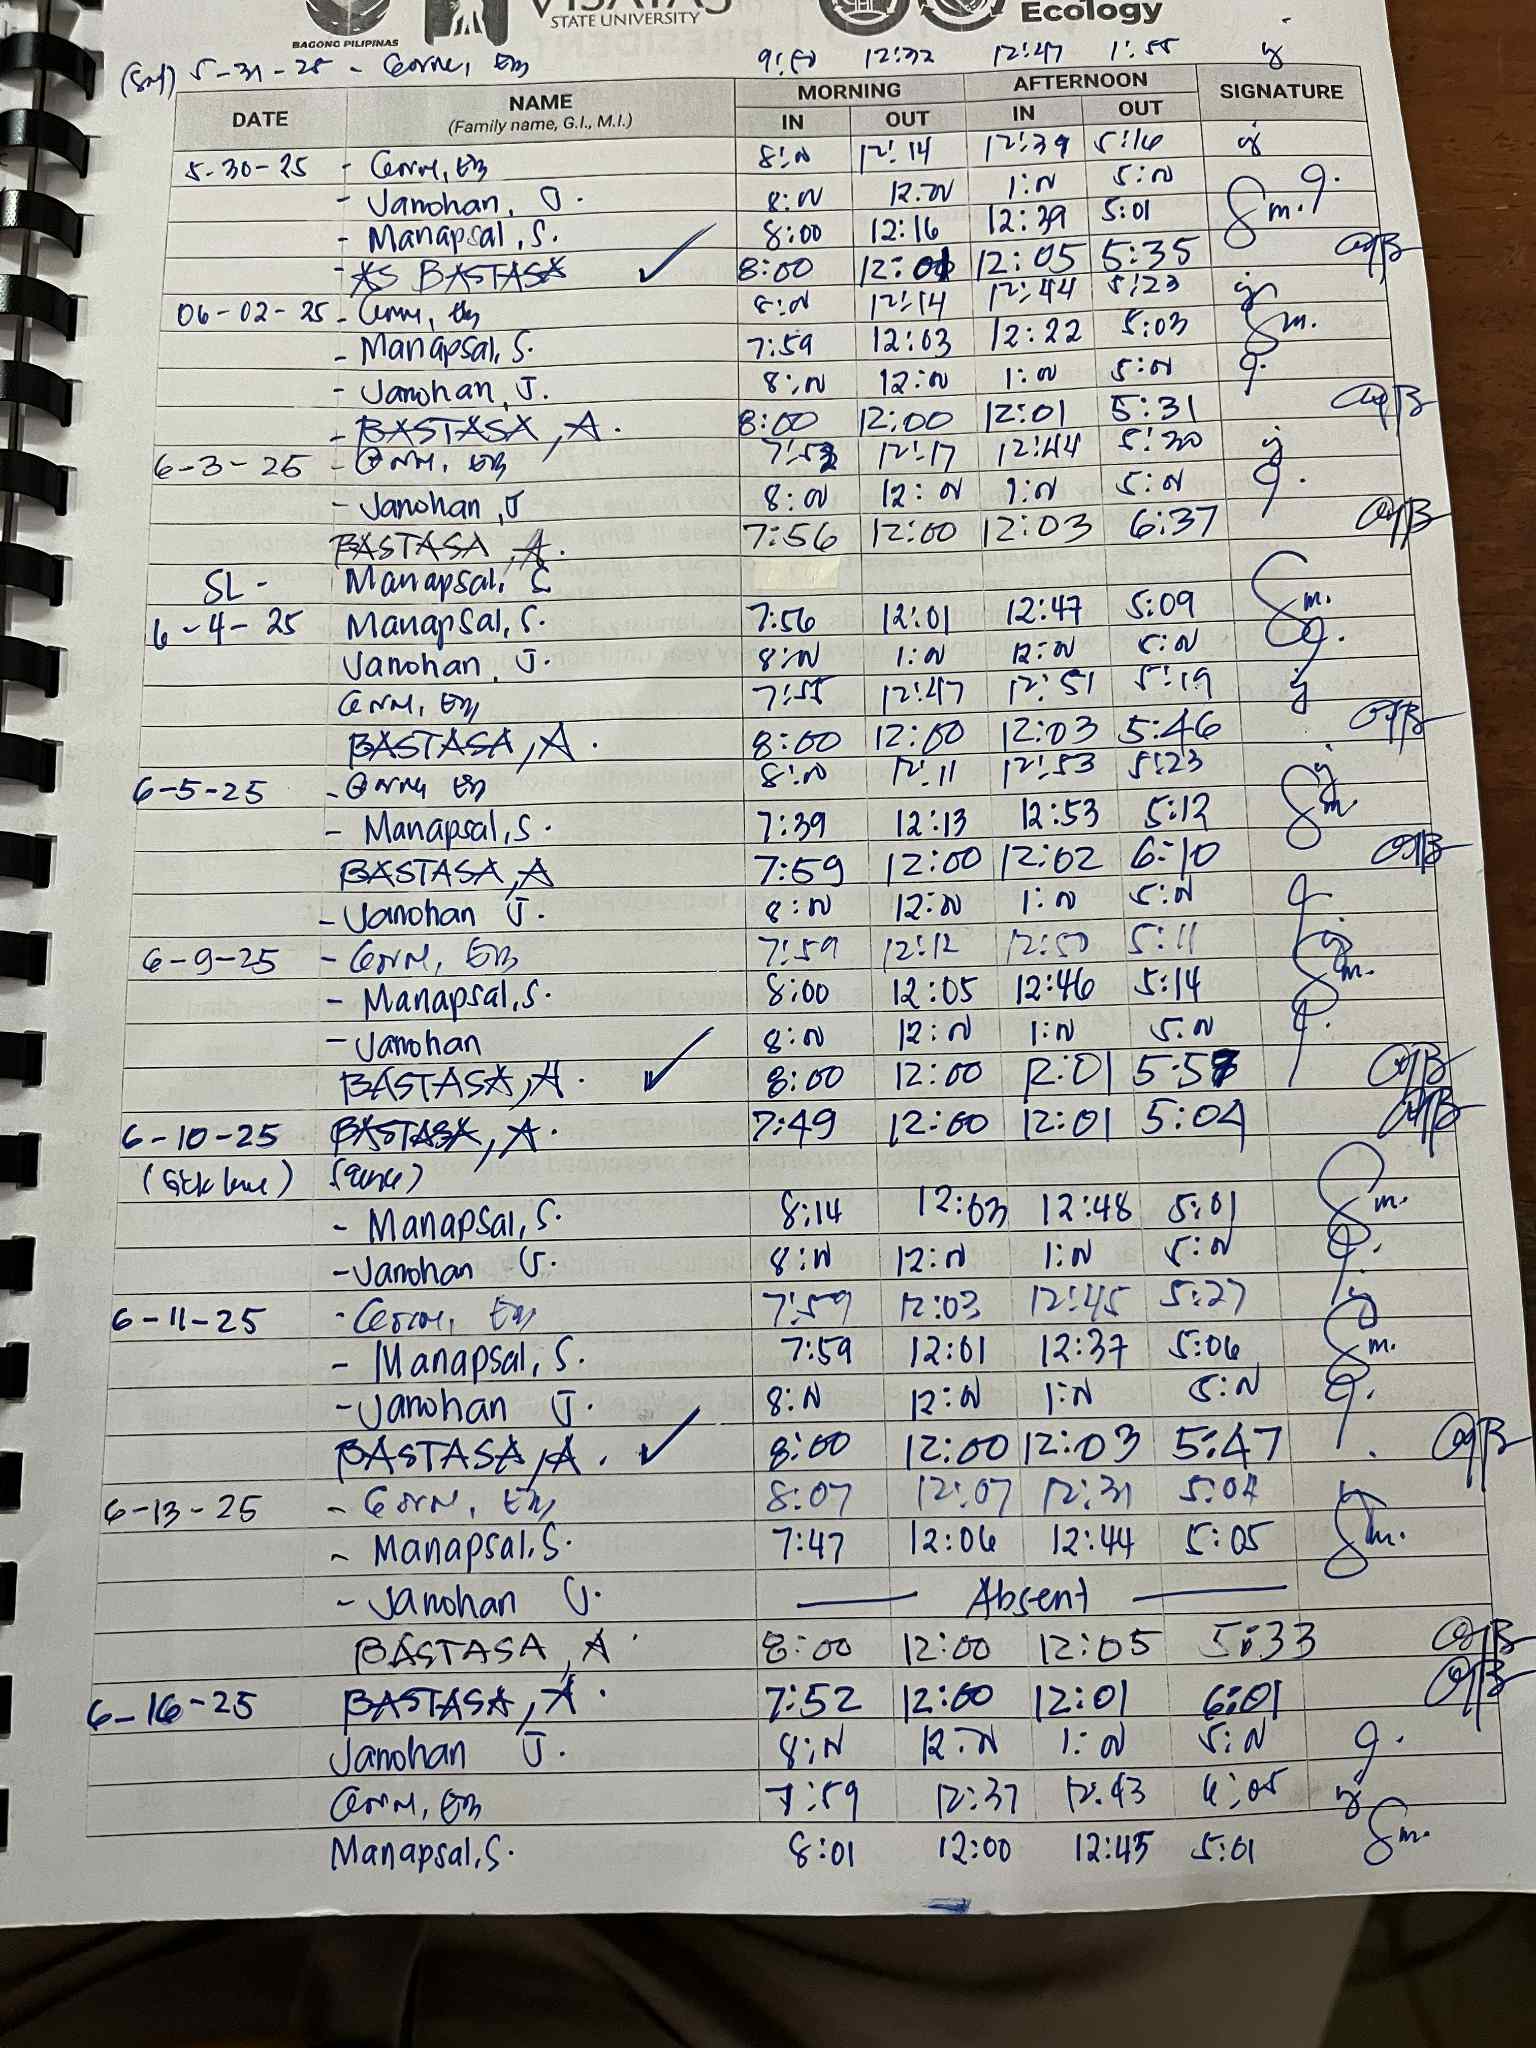 BAGONG PILIPINAS
VISAYAS
STATE UNIVERSITY
Ecology
(Sat) 5-31-25 - 12:32 12:47 1:55
DATE NAME (Family name, G.I., M.I.) MORNING IN OUT AFTERNOON IN OUT SIGNATURE
5-30-25 - 8:00 12:14 12:39 5:16
- Janohan, J. 8:00 12:00 1:00 5:00
- Manapsal, S. 8:00 12:16 12:39 5:01 Sm.
- AS BASTASA ✓ 8:00 12:01 12:05 5:35
06-02-25 - 8:00 12:14 12:44 5:23
- Manapsal, S. 7:59 12:03 12:22 5:03 Sm.
- Janohan, J. 8:00 12:00 1:00 5:00
- BASTASA, A. 8:00 12:00 12:01 5:31
6-3-25 - 12:17 12:44 5:30
- Janohan, J 8:00 12:00 1:00 5:00
BASTASA, A. 7:56 12:00 12:03 6:37
SL - Manapsal, S
6-4-25 Manapsal, S. 7:56 12:01 12:47 5:09 Sm.
Janohan, J. 8:00 1:00 12:00 5:00
7:55 12:47 12:51 5:19
BASTASA, A. 8:00 12:00 12:03 5:46
6-5-25 - 8:00 12:11 12:53 5:23
- Manapsal, S. 7:39 12:13 12:53 5:12 Sm.
BASTASA, A 7:59 12:00 12:02 6:10
- Janohan J. 8:00 12:00 1:00 5:00
6-9-25 - 7:59 12:12 12:50 5:11
- Manapsal, S. 8:00 12:05 12:46 5:14 Sm.
- Janohan 8:00 12:00 1:00 5:00
BASTASA, A. ✓ 8:00 12:00 12:01
6-10-25 BASTASA, A. 7:49 12:00 12:01 5:04
(Sick leave)
- Manapsal, S. 8:14 12:03 12:48 5:01 Sm.
- Janohan J. 8:00 12:00 1:00 5:00
6-11-25 - 7:59 12:03 12:45 5:27
- Manapsal, S. 7:59 12:01 12:37 5:06 Sm.
- Janohan J. 8:00 12:00 1:00 5:00
BASTASA, A. ✓ 8:00 12:00 12:03 5:47
6-13-25 - 8:07 12:07 12:31
- Manapsal, S. 7:47 12:06 12:44 5:05 Sm.
- Janohan J. — Absent —
BASTASA, A 8:00 12:00 12:05 5:33
6-16-25 BASTASA, A. 7:52 12:00 12:01 6:01
Janohan J. 8:00 12:00 1:00 5:00
7:59 12:37 12:43 6:05
Manapsal, S. 8:01 12:00 12:45 5:01 Sm.